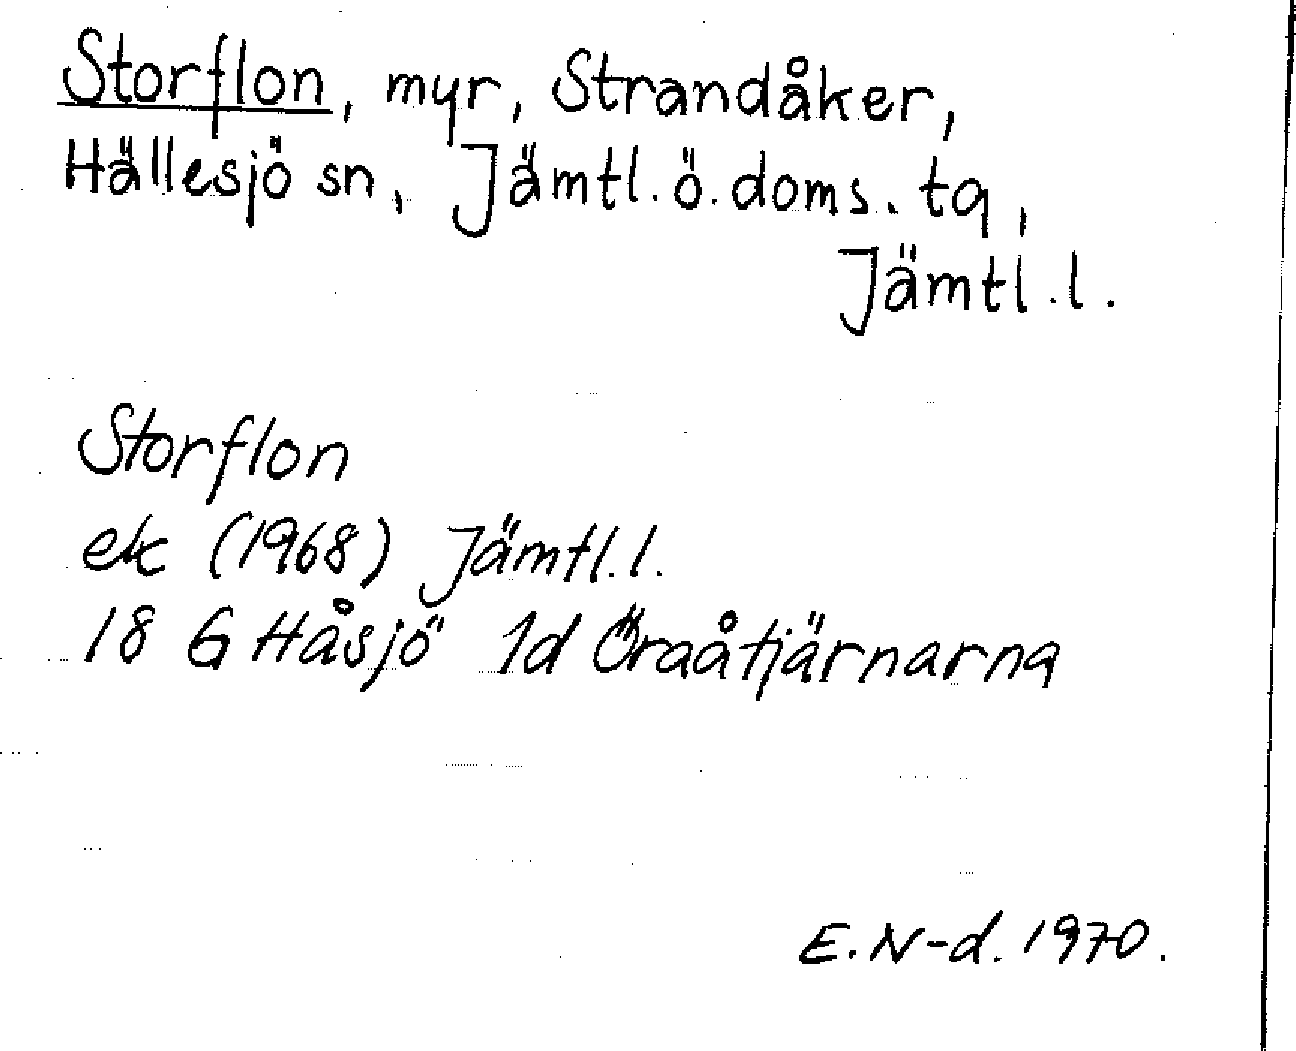 Storflon, myr, Strandåker,
Hällesjö sn, Jämtl. ö. doms. tq,
Jämtl. l.
Storflon
ek (1968) Jämtl. l.
18 G Håsjö 1d Öraåtjärnarna
E. N-d. 1970.